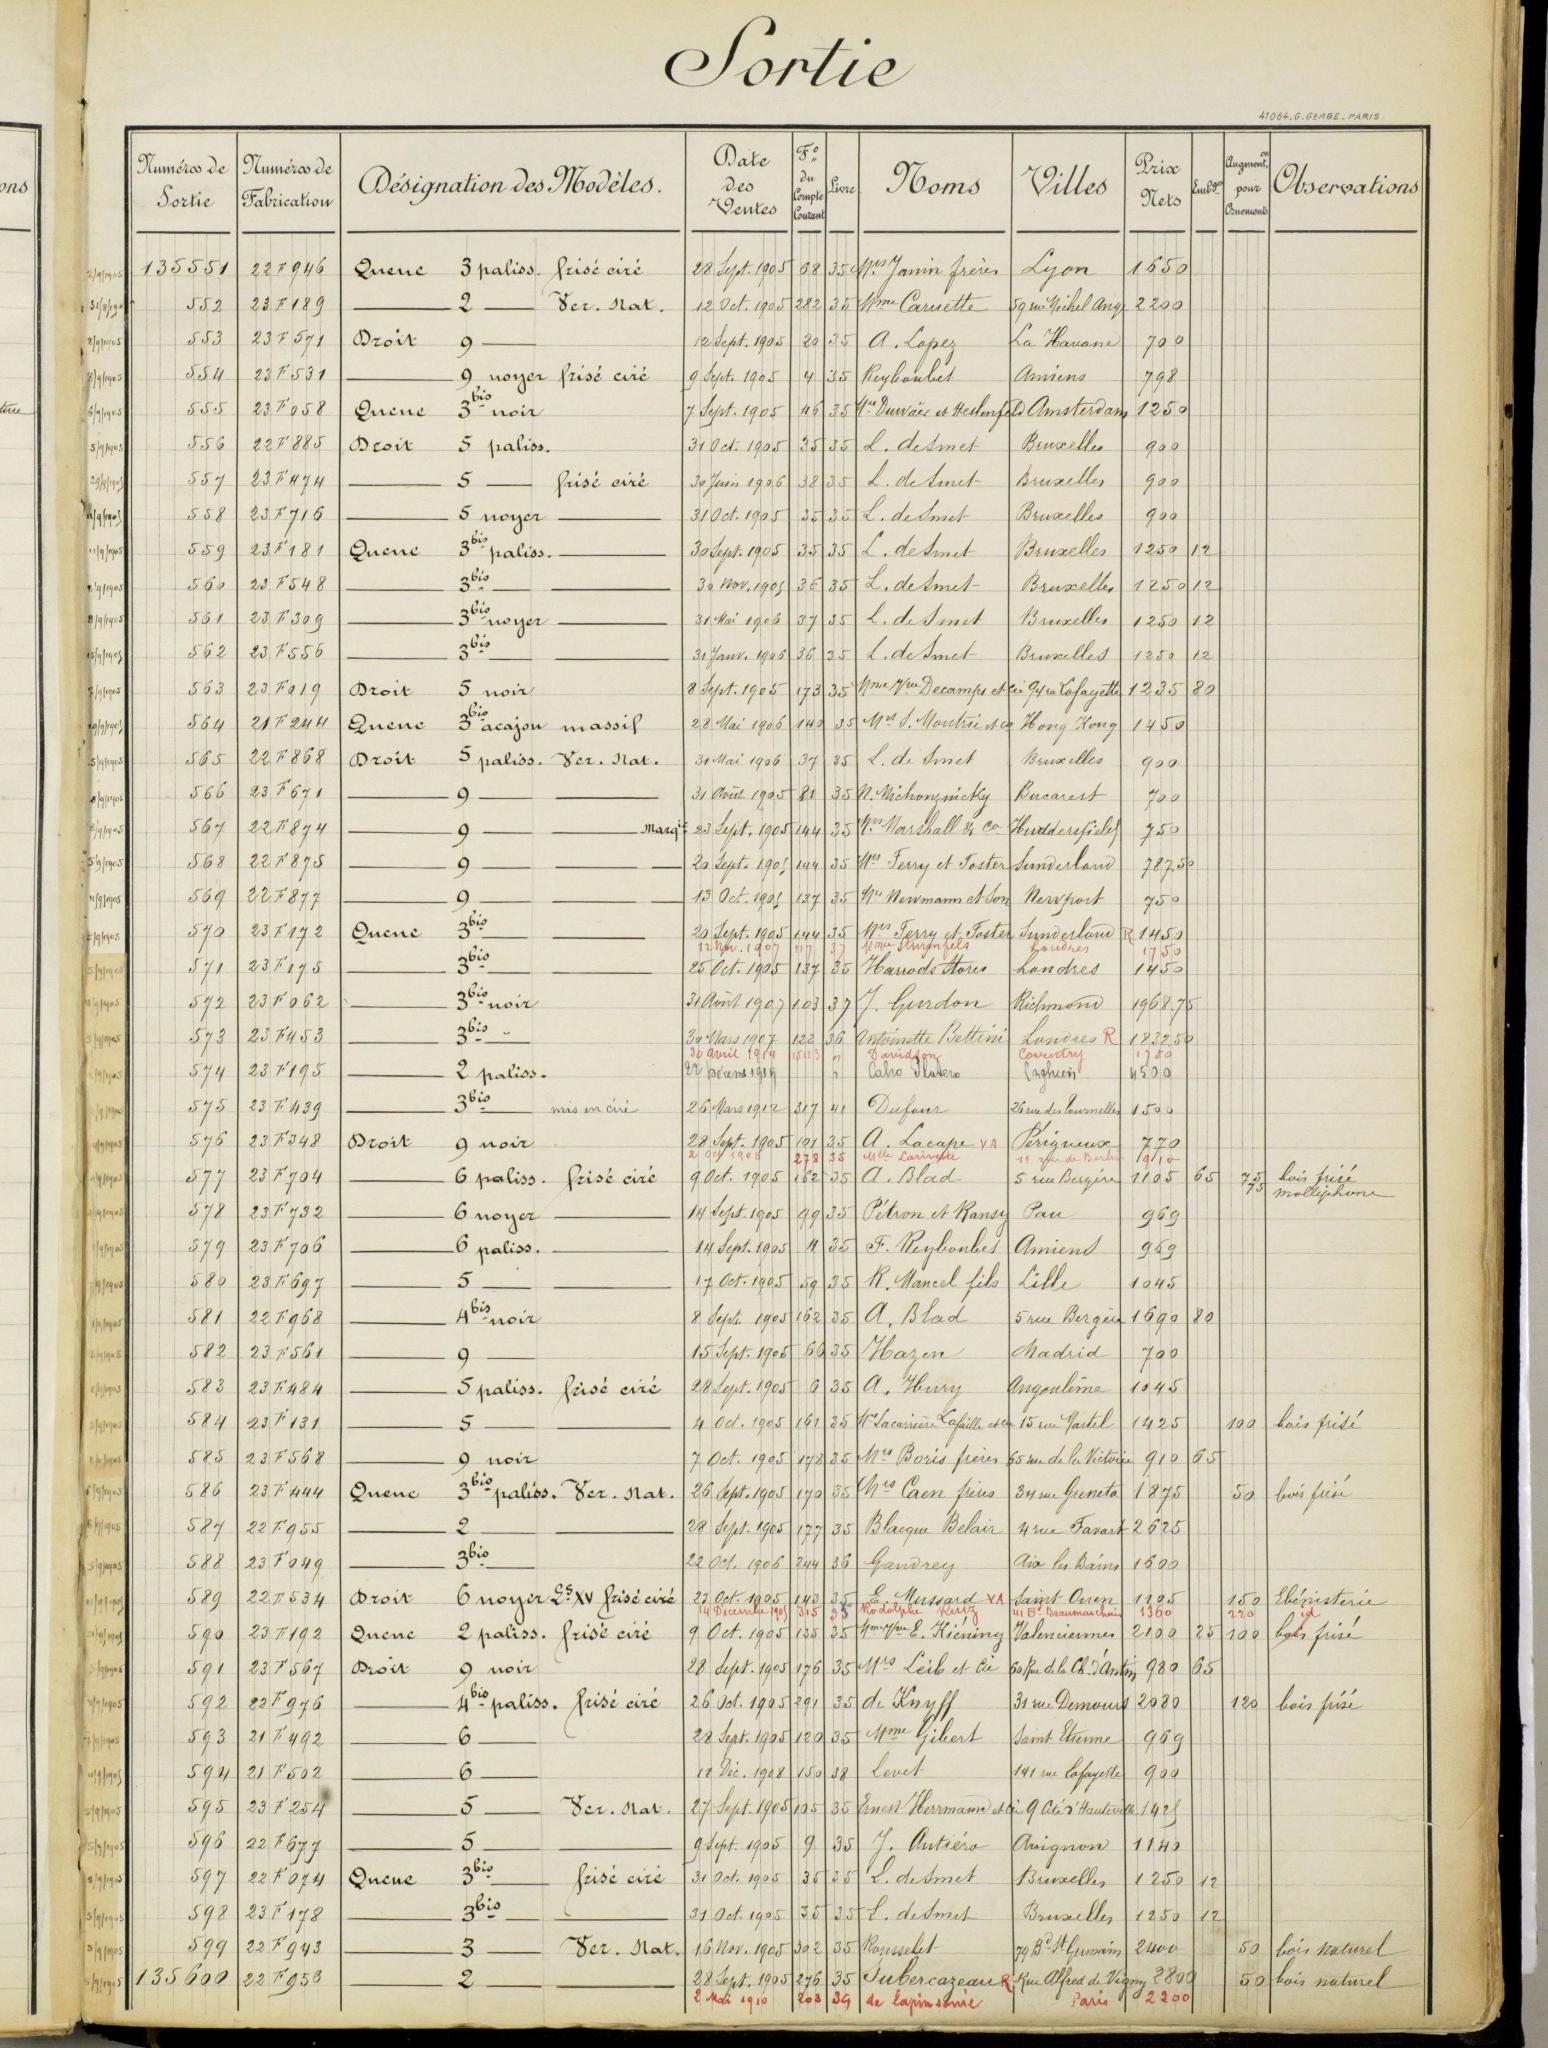 Sortie
41064. G. GERBE. PARIS
Numéros de Sortie | Numéros de Fabrication | Désignation des Modèles. | Date des Ventes | F° du Compte Courant | Livre | Noms | Villes | Prix Nets | Emb. | Augment. pour Ornements | Observations
135551 22F946 Queue 3 paliss. frisé ciré 28 Sept. 1905 68 35 Mrs Janin frères Lyon 1650
552 23F189 — 2 — Ver. Nat. 12 Oct. 1905 282 35 Mme Caruette 59 rue Michel Ange 2200
553 23F571 Droit 9 — 12 Sept. 1905 20 35 A. Lopez La Havane 700
554 23F531 — 9 noyer frisé ciré 9 Sept. 1905 4 35 Reyboubet Amiens 798
555 23F058 Queue 3bis noir 7 Sept. 1905 46 35 Amsterdam 1250
556 22F885 Droit 5 paliss. 31 Oct. 1905 35 35 L. de Smet Bruxelles 900
557 23F474 — 5 — frisé ciré 30 Juin 1906 38 35 L. de Smet Bruxelles 900
558 23F716 — 5 noyer — 31 Oct. 1905 35 35 L. de Smet Bruxelles 900
559 23F181 Queue 3bis paliss. — 30 Sept. 1905 35 35 L. de Smet Bruxelles 1250 12
560 23F548 — 3bis — — 30 Nov. 1905 36 35 L. de Smet Bruxelles 1250 12
561 23F309 — 3bis noyer — 31 Mai 1906 37 35 L. de Smet Bruxelles 1250 12
562 23F556 — 3bis — — 31 Janv. 1906 36 35 L. de Smet Bruxelles 1250 12
563 23F019 Droit 5 noir 8 Sept. 1905 173 35 Mme Vve Decamps et Cie 94 r. Lafayette 1235 80
564 21F244 Queue 3bis acajou massif 28 Mai 1906 140 35 Mrs S. Moutrie et co Hong Kong 1450
565 22F868 Droit 5 paliss. Ver. Nat. 31 Mai 1906 37 35 L. de Smet Bruxelles 900
566 23F671 — 9 — — 31 Août 1905 81 35 Bucarest 700
567 22F874 — 9 — — marqie 23 Sept. 1905 144 35 Mrs Marshall & Co Huddersfield 750
568 22F875 — 9 — — — 20 Sept. 1905 144 35 Mrs Ferry et Foster Sunderland 787.50
569 22F877 — 9 — — — 13 Oct. 1905 137 35 Mrs Newmann et Son Newport 750
570 23F172 Queue 3bis — — 20 Sept. 1905 144 35 Mrs Ferry et Foster Sunderland R 1450
12 Nov. 1907 117 37 Mme Sturmfels Londres 1750
571 23F175 — 3bis — — 25 Oct. 1905 137 35 Harrods Stores Londres 1450
572 23F062 — 3bis noir 31 Août 1907 103 37 J. Gurdon Richmond 1968.75
573 23F453 — 3bis — 30 Mars 1907 122 36 Antoinette Bettini Londres R 1832.50
30 avril 1914 Davidson Coventry 1750
574 23F195 — 2 paliss. 22 1919 Calvo Platero Enghien 4500
575 23F439 — 3bis — mis en ciré 26 Mars 1912 317 41 Dufour 26 rue des Tournelles 1500
576 23F348 Droit 9 noir 28 Sept. 1905 101 35 A. Lacape VA Périgueux 770
2 Oct 1905 278 35 Mlle 11 rue de Berlin 910
577 23F704 — 6 paliss. frisé ciré 9 Oct. 1905 162 35 A. Blad 5 rue Bergère 1105 65 75 bois frisé
75 molliphone
578 23F732 — 6 noyer — 14 Sept. 1905 99 35 Pétron et Ransy Pau 969
579 23F706 — 6 paliss. — 14 Sept. 1905 4 35 F. Reyboubet Amiens 969
580 23F697 — 5 — — 17 Oct. 1905 59 35 R. Mancel fils Lille 1045
581 22F968 — 4bis noir 8 Sept. 1905 162 35 A. Blad 5 rue Bergère 1690 80
582 23F561 — 9 — 15 Sept. 1905 66 35 Hazen Madrid 700
583 23F484 — 5 paliss. frisé ciré 28 Sept. 1905 6 35 A. Hury Angoulême 1045
584 23F131 — 5 — — 4 Oct. 1905 161 35 Lafaille et Cie 15 rue Martel 1425 100 bois frisé
585 23F568 — 9 noir 7 Oct. 1905 178 35 Mrs Boris frères 65 rue de la Victoire 910 65
586 23F444 Queue 3bis paliss. Ver. Nat. 26 Sept. 1905 170 35 Mrs Caen frères 34 rue Greneta 1875 50 bois frisé
587 22F955 — 2 — — 28 Sept. 1905 177 35 Blacque Belair 4 rue Favart 2625
588 23F049 — 3bis — 22 Oct. 1906 244 36 Gandrey Aix les Bains 1600
589 22F534 Droit 6 noyer Ls XV frisé ciré 23 Oct. 1905 143 35 E. Mussard VA Saint Ouen 1205 150 Ebénisterie
14 Décembre 1905 315 35 Rodolphe 41 Bd Beaumarchais 1360 220 id
590 23F192 Queue 2 paliss. frisé ciré 9 Oct. 1905 135 35 Mme Vve E. Kiéning Valenciennes 2100 25 100 bois frisé
591 23F567 Droit 9 noir 28 Sept. 1905 176 35 Mrs Leib et Cie 60 Rue de la Ch. d'Antin 980 65
592 22F976 — 4bis paliss. frisé ciré 26 Oct. 1905 291 35 de Knyff 31 rue Demours 2080 120 bois frisé
593 21F492 — 6 — 28 Sept. 1905 120 35 Mme Gibert Saint Etienne 969
594 21F502 — 6 — 18 Déc. 1908 150 38 Levet 141 rue Lafayette 900
595 23F254 — 5 — Ver. Nat. 27 Sept. 1905 105 35 Ernest Herrmann et Cie 9 Cité d'Hauteville 1425
596 22F677 — 5 — — 9 Sept. 1905 9 35 J. Autiéro Avignon 1140
597 22F074 Queue 3bis — frisé ciré 31 Oct. 1905 35 35 L. de Smet Bruxelles 1250 12
598 23F178 — 3bis — — 31 Oct. 1905 35 35 L. de Smet Bruxelles 1250 12
599 22F943 — 3 — Ver. Nat. 16 Nov. 1905 302 35 Rousselet 79 Bd St Germain 2400 50 bois naturel
135600 22F953 — 2 — — 28 Sept. 1905 276 35 Tubercazeau R Rue Alfred de Vigny 2800 50 bois naturel
2 Mai 1910 203 39 de Lapinsonie Paris 2200